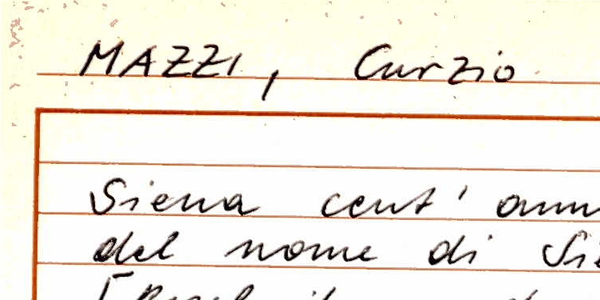 MAZZI, Curzio
Siena cent' ann
del nome di Si